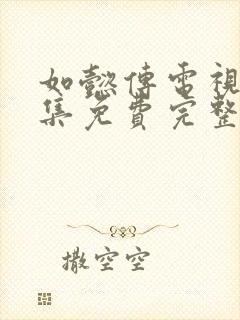 如懿傳電視
集免費完整
撒空空